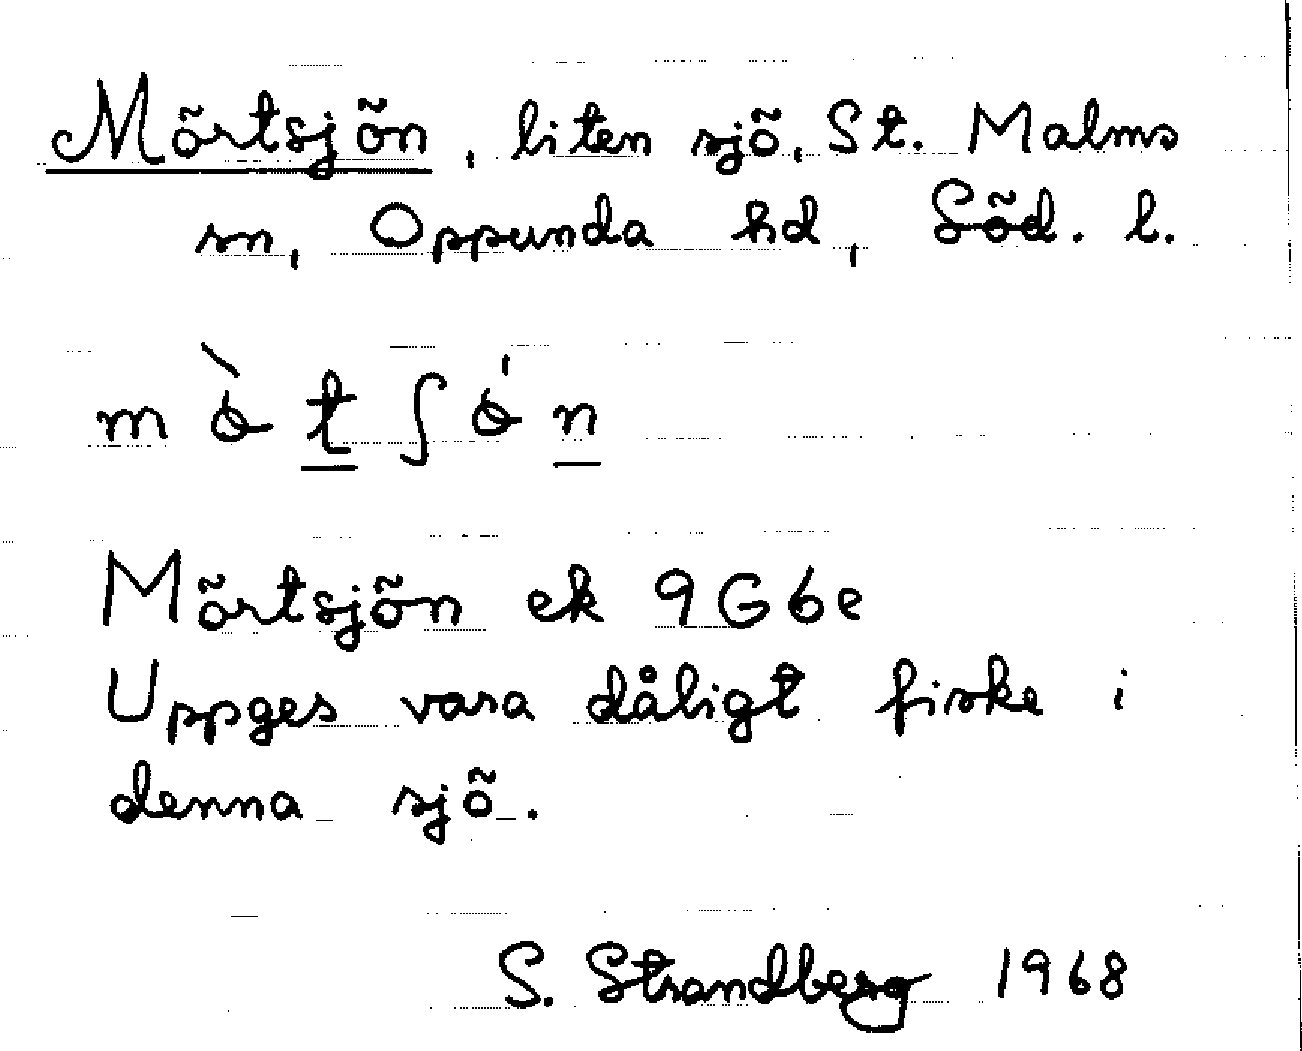 Mörtsjön, liten sjö, St. Malms
sn, Oppunda hd, Söd. l.
Mörtsjön ek 9G6e
Uppges vara dåligt fiske i
denna sjö.
S. Strandberg 1968